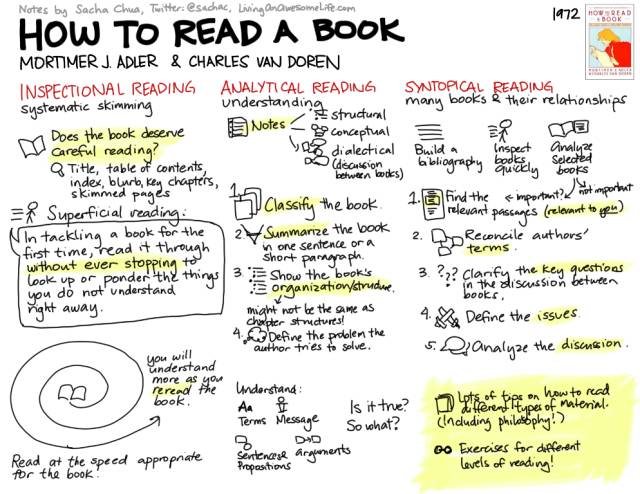 Notes by Sacha Chua, Twitter: @sachac, LivingAnAwesomeLife.com
HOW TO READ A BOOK
MORTIMER J. ADLER & CHARLES VAN DOREN
1972
HOW TO READ
A BOOK
INSPECTIONAL READING
systematic skimming
Does the book deserve
careful reading?
Title, table of contents,
index, blurb, key chapters,
skimmed pages
Superficial reading:
In tackling a book for the
first time, read it through
without ever stopping to
look up or ponder the things
you do not understand
right away.
you will
understand
more as you
reread the
book.
Read at the speed appropriate
for the book.
ANALYTICAL READING
understanding
Notes
structural
conceptual
dialectical
(discussion
between books)
1. Classify the book.
2. Summarize the book
in one sentence or a
short paragraph.
3. Show the book's
organization/structure.
might not be the same as
chapter structures!
4. Define the problem the
author tries to solve.
Understand:
Aa
Terms
Message
Sentences &
Propositions
arguments
Is it true?
So what?
SYNTOPICAL READING
many books & their relationships
Build a
bibliography
Inspect
books
quickly
Analyze
selected
books
important?
not important
1. Find the
relevant passages (relevant to you)
2. Reconcile authors'
terms.
3. ??? Clarify the key questions
in the discussion between
books.
4. Define the issues.
5. Analyze the discussion.
Lots of tips on how to read
different types of material.
(Including philosophy!)
Exercises for different
levels of reading!